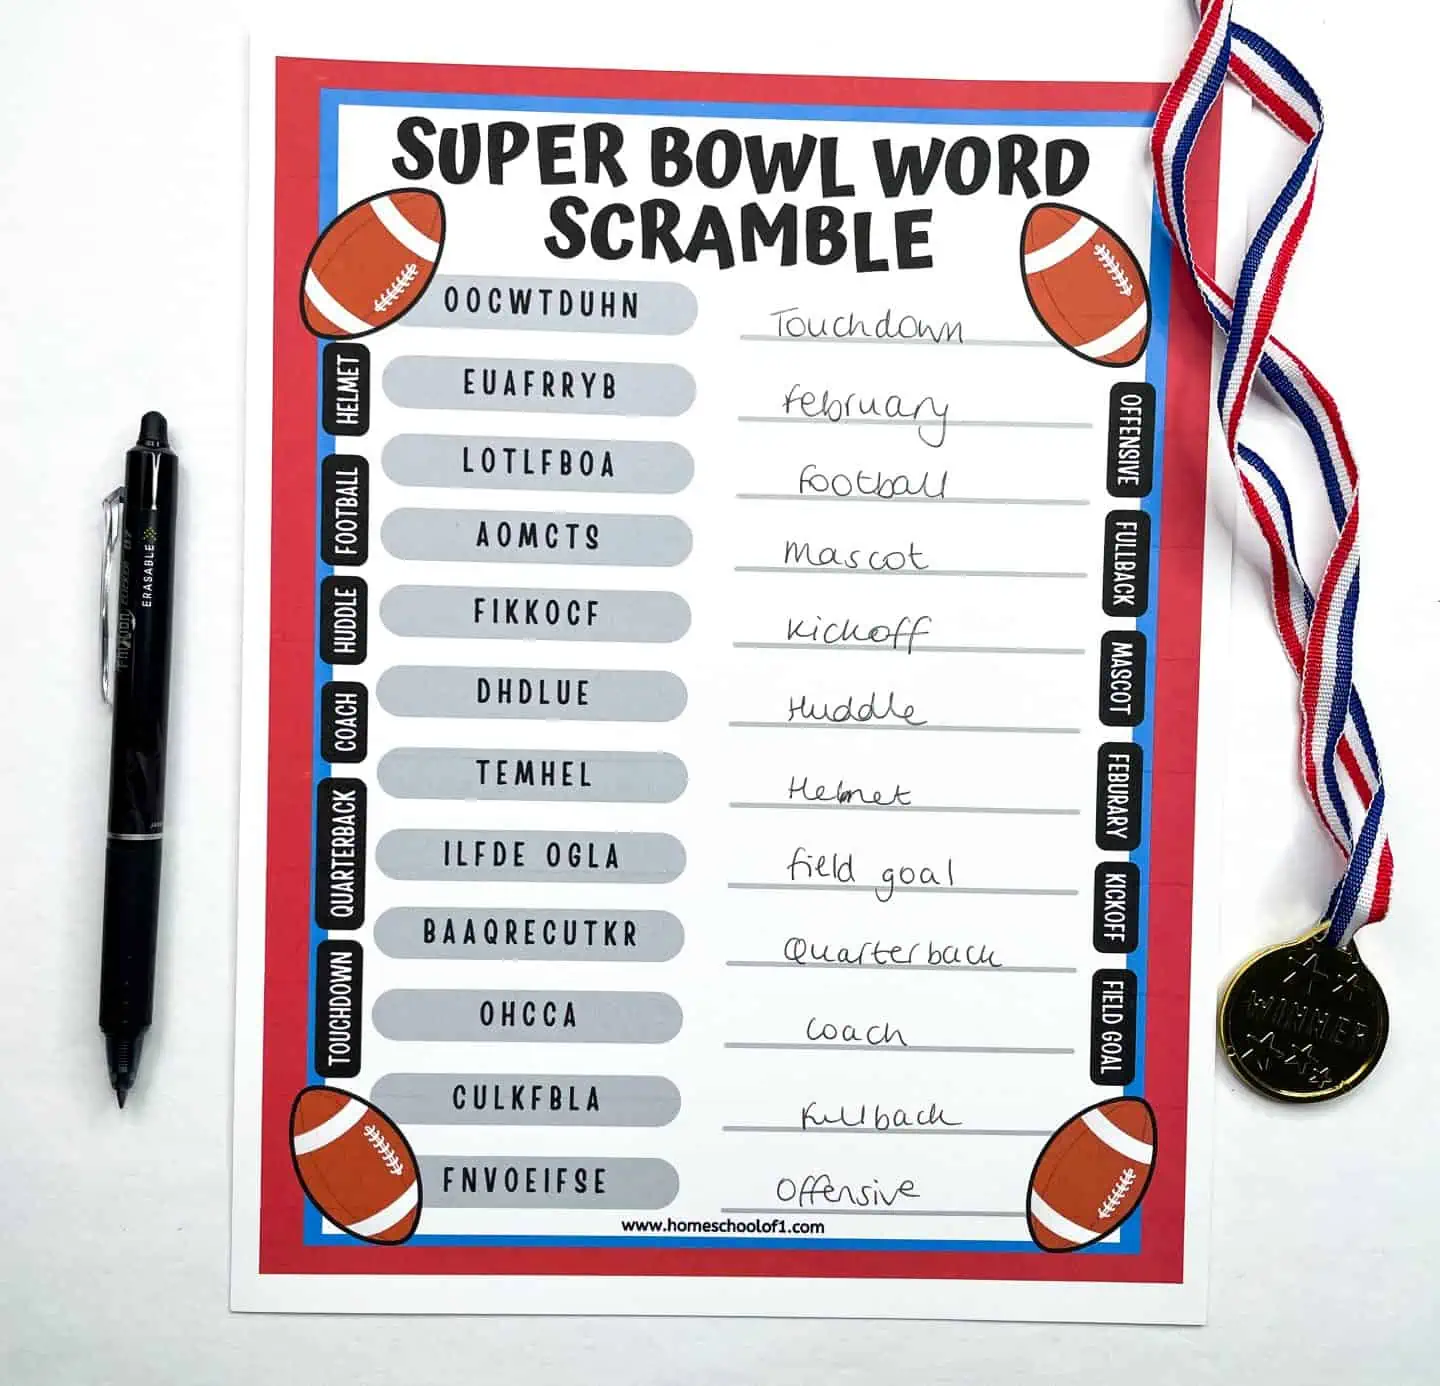 SUPER BOWL WORD
SCRAMBLE
OOCWTDUHN
Touchdown
EUAFRRYB
february
LOTLFBOA
football
AOMCTS
mascot
FIKKOCF
kickoff
DHDLUE
Huddle
TEMHEL
Helmet
ILFDE OGLA
field goal
BAAQRECUTKR
Quarterback
OHCCA
coach
CULKFBLA
fullback
FNVOEIFSE
offensive
www.homeschoolof1.com
HELMET
FOOTBALL
HUDDLE
COACH
QUARTERBACK
TOUCHDOWN
OFFENSIVE
FULLBACK
MASCOT
FEBURARY
KICKOFF
FIELD GOAL
ERASABLE
WINNER